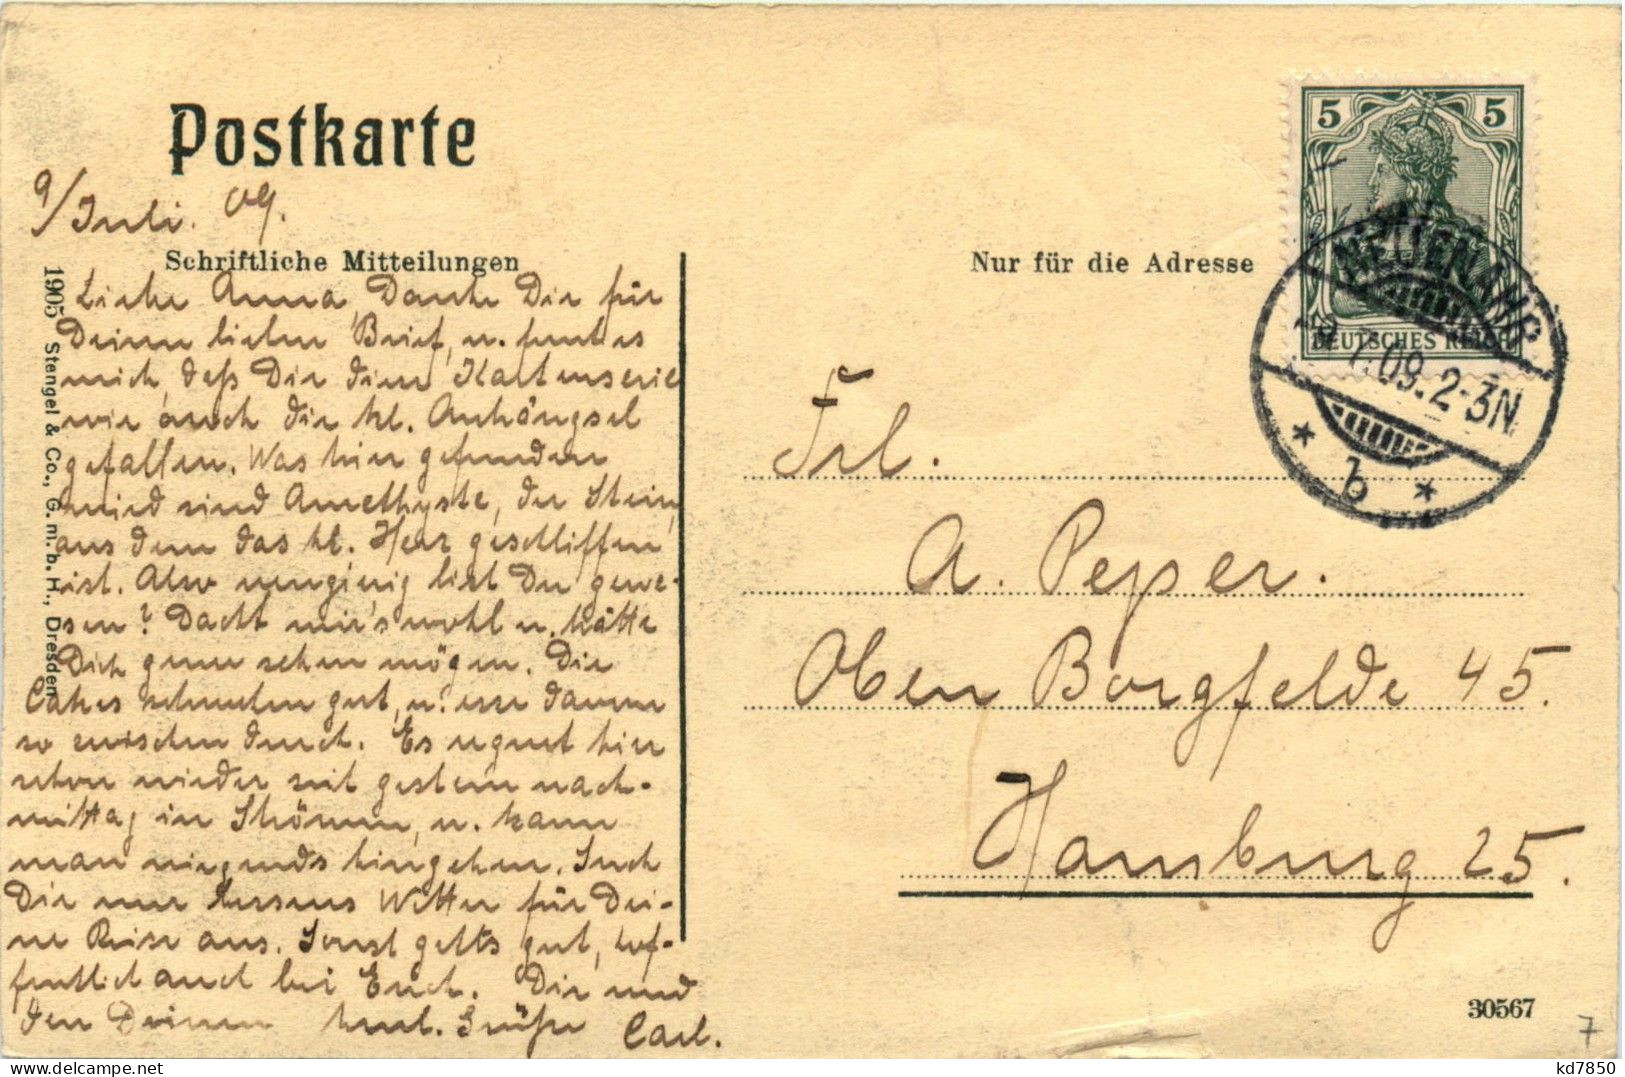 Postkarte
9/Juli. 09.
Schriftliche Mitteilungen
Liebe Anna, Danke Dir für
Deinen lieben Brief, u. freut es
mich, daß Dir die Kartenserie
wie auch die kl. Anhängsel
gefallen. Was hier gefunden
wird sind Amethyste, der Stein,
aus dem das kl. Herz geschliffen
ist. Also neugierig bist Du gewe-
sen? Dacht mir's wohl u. hätte
Dich gern sehen mögen. Die
Cakes schmecken gut, u. esse davon
so zwischen durch. Es regnet hier
schon wieder seit gestern nach-
mittag in Strömen, u. kann
man nirgends hingehen. Such
Dir nur besseres Wetter für Dei-
ne Reise aus. Sonst gehts gut, hof-
fentlich auch bei Euch. Dir und
den Deinen herzl. Grüße Carl.
1905 Stengel & Co., G. m. b. H., Dresden
Nur für die Adresse
5 5
DEUTSCHES REICH
NEUENAHR
7.09.2-3N
* b *
Frl.
A. Peper.
Oben Borgfelde 45.
Hamburg 25.
30567
7
kd7850